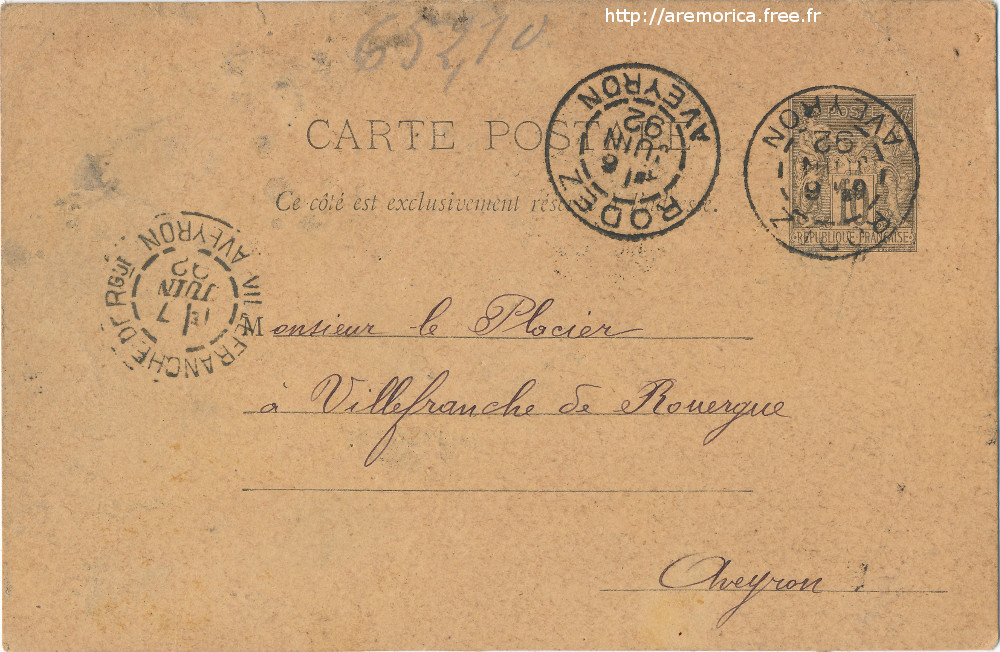 http://aremorica.free.fr
65210
CARTE POSTALE
Ce côté est exclusivement réservé à l'adresse.
RODEZ
6
JUIN
92
AVEYRON
RODEZ
6
92
AVEYRON
RÉPUBLIQUE FRANÇAISE
VILLEFRANCHE DE RGUE
7
JUIN
92
AVEYRON
Monsieur le Placier
à Villefranche de Rouergue
Aveyron